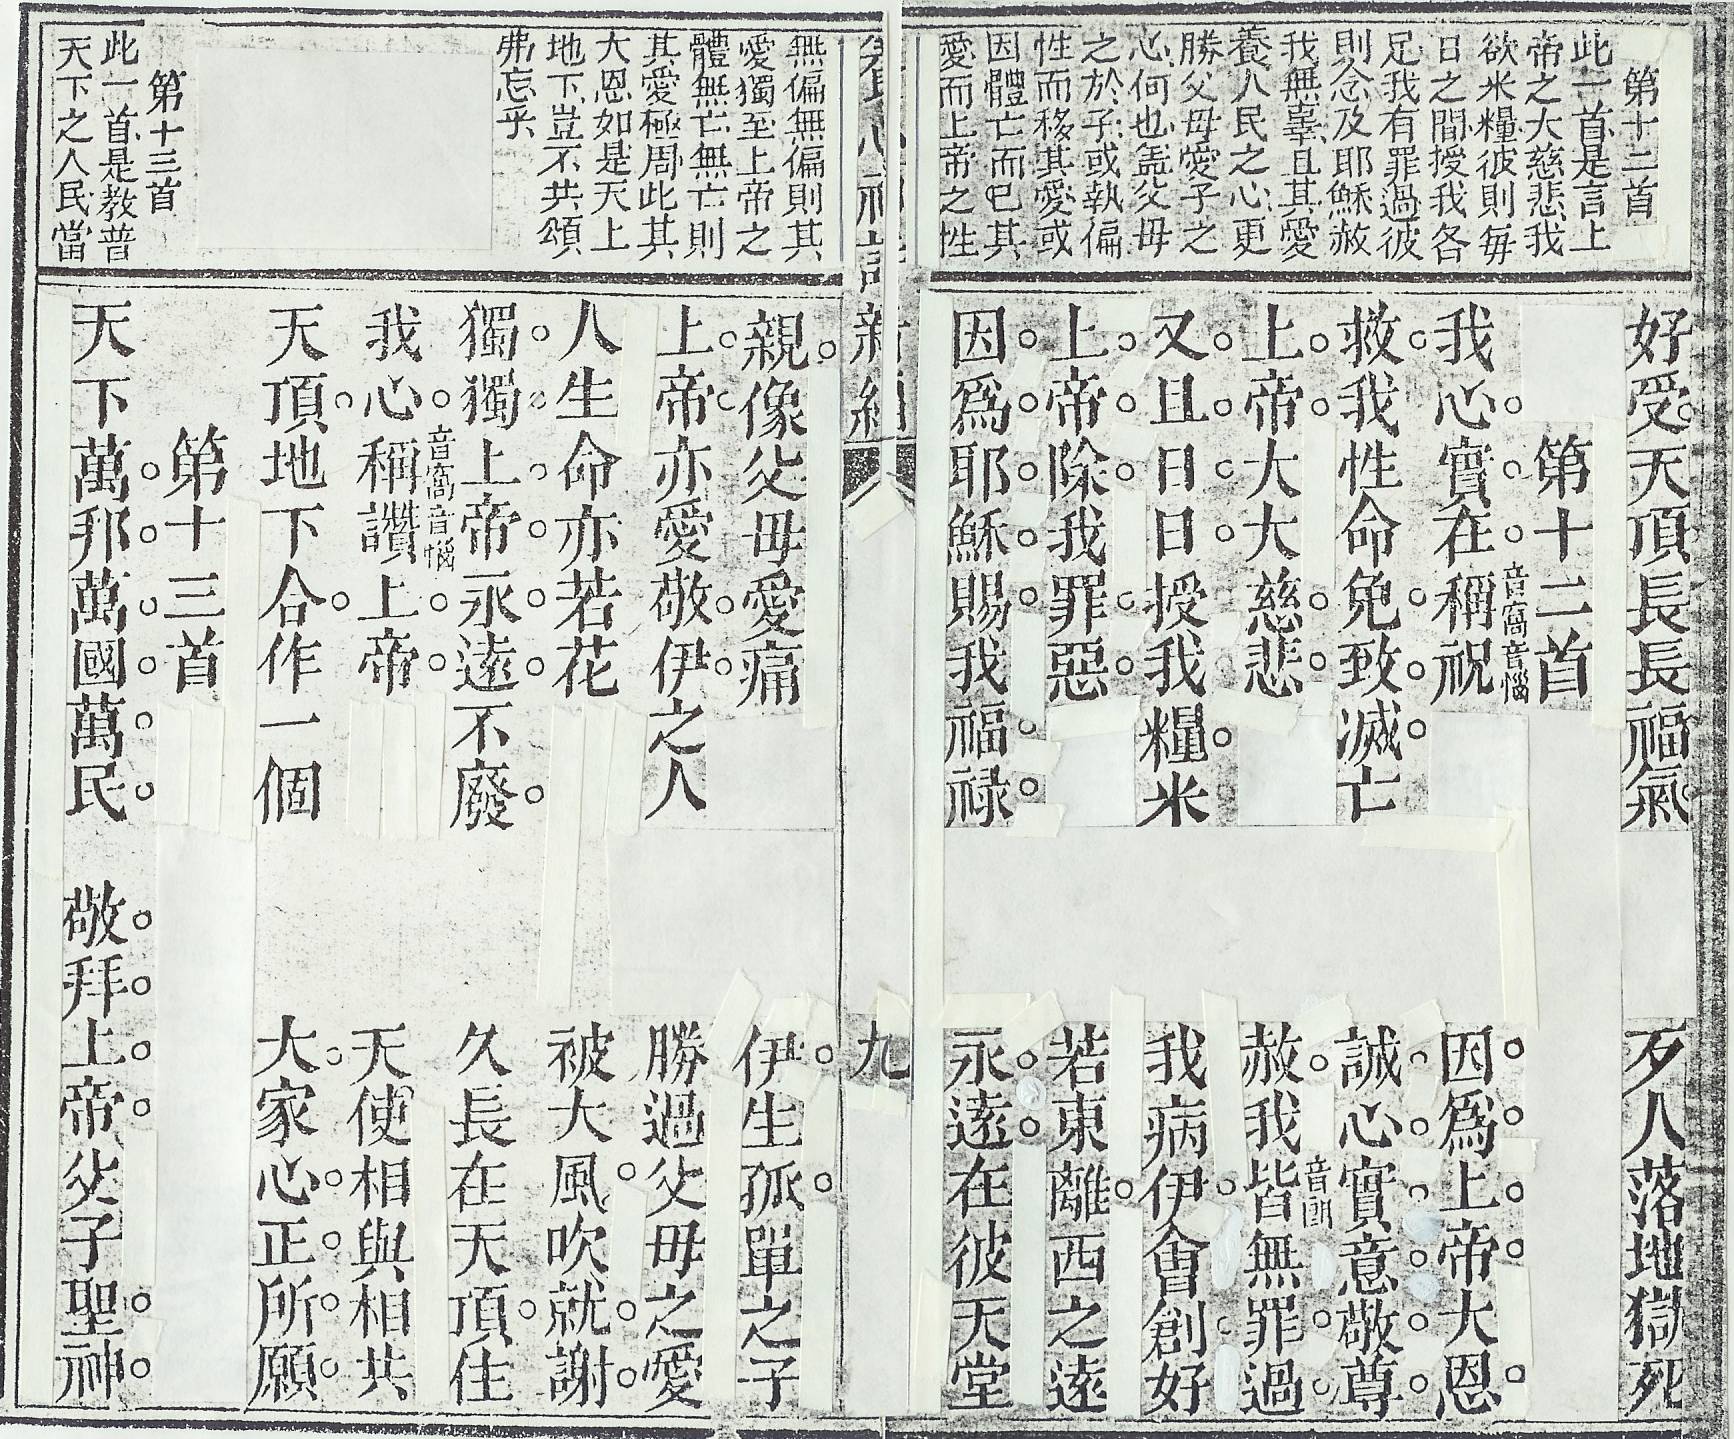 第十二首
此一首是言上
帝之大慈悲我
欲米糧彼則每
日之間授我各
足我有罪過彼
則念及耶穌赦
我無辜且其愛
養人民之心更
勝父母愛子之
心何也盖父母
之於子或執偏
性而移其愛或
因體亡而已其
愛而上帝之性
好受。天頂長長福氣。 歹人落地獄死
第十二首
我心。實。在。稱祝音窩音惱 因。爲。上。帝。大恩。
救。我性命免。致。滅。亡 誠。心。實。意。敬。尊。
上。帝。大大慈。悲。 赦。我皆音囿無罪。過。
又。且。日。日。授我糧。米 我病伊。會創。好
上。帝。除。我罪。惡。 若東離。西之遠
因。爲。耶。穌。賜。我福。祿。 永。遠。在彼天堂
神詩新編
九
無偏無偏則其
愛獨至上帝之
體無亡無亡則
其愛極周此其
大恩如是天上
地下豈不共頌
弗忘乎
親。像父母愛痛 伊。生孤。單之子
上。帝。亦愛敬。伊。之人 勝過父母之愛
人生命亦若花 被大風。吹就。謝。
獨。獨。上。帝。永。遠。不廢。 久長在天頂。住
我心。稱讚音窩音惱上。帝。 天使相與相共
天頂。地下合。作一個 大。家心。正。所。願。
第十三首
此一首是教普
天下之人民當
第十三首
天下萬。邦。萬。國。萬。民。 敬。拜。上。帝。父子聖。神。